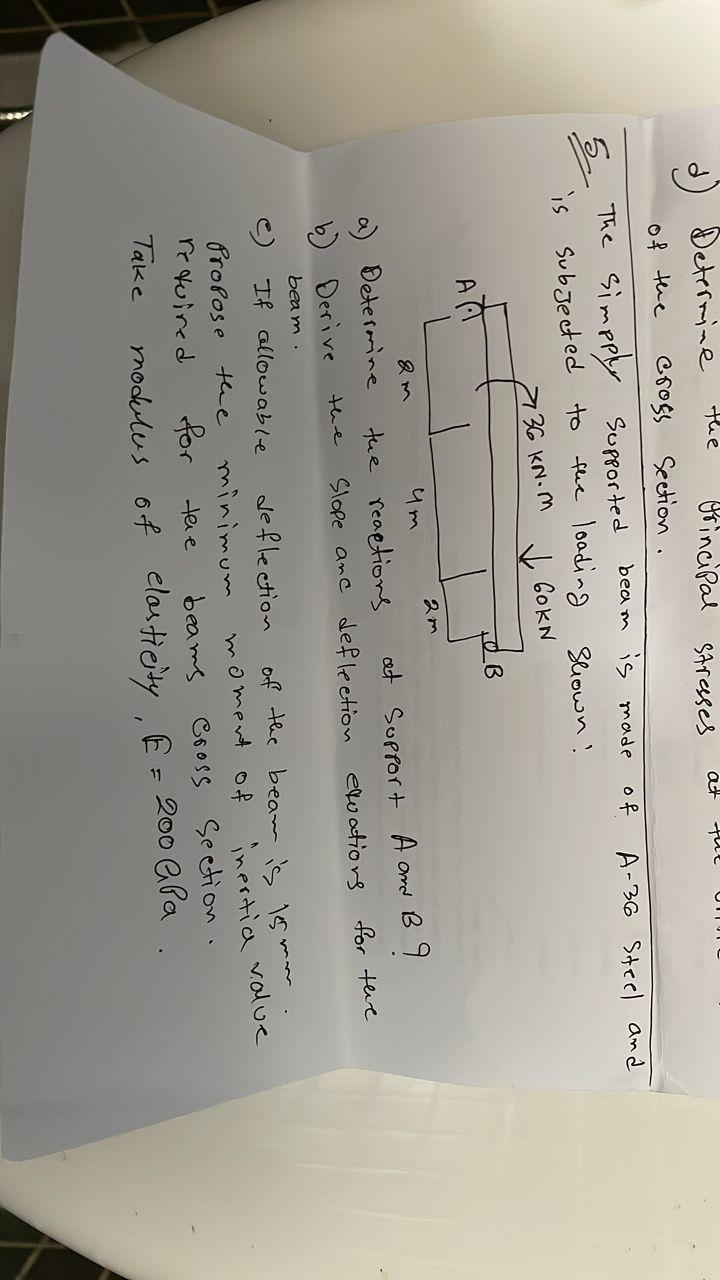 d) Determine the principal stresses at the
of the cross section.
5 The simpply supported beam is made of A-36 Steel and
is subjected to the loading shown:
36 KN.M 60KN
A B
2m 4m 2m
a) Determine the reactions at support A and B ?
b) Derive the slope and deflection equations for the
beam.
c) If allowable deflection of the beam is 15mm.
Propose the minimum moment of inertia value
required for the beams cross section.
Take modulus of elasticity, E = 200 GPa.